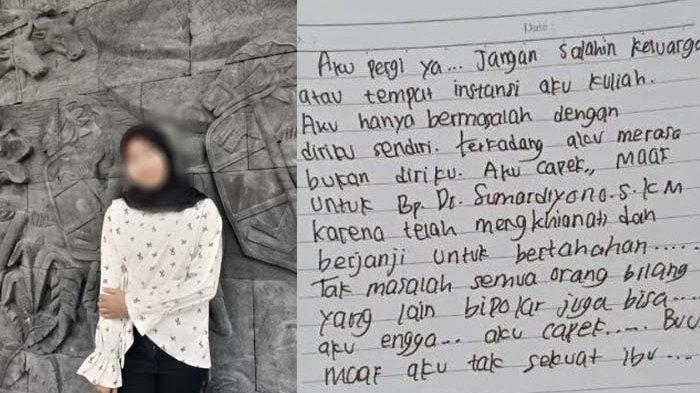 Date :
Aku pergi ya... Jangan salahin keluarga
atau tempat instansi aku kuliah.
Aku hanya bermasalah dengan
diriku sendiri. terkadang aku merasa
bukan diriku. Aku capek,, maaf
untuk Bp. Dr. Sumardiyono.S.KM
karena telah mengkhianati dan
berjanji untuk bertahahan.....
Tak masalah semua orang bilang
yang lain bipolar juga bisa...
aku engga... aku capek..... Bu
maaf aku tak sekuat ibu ....